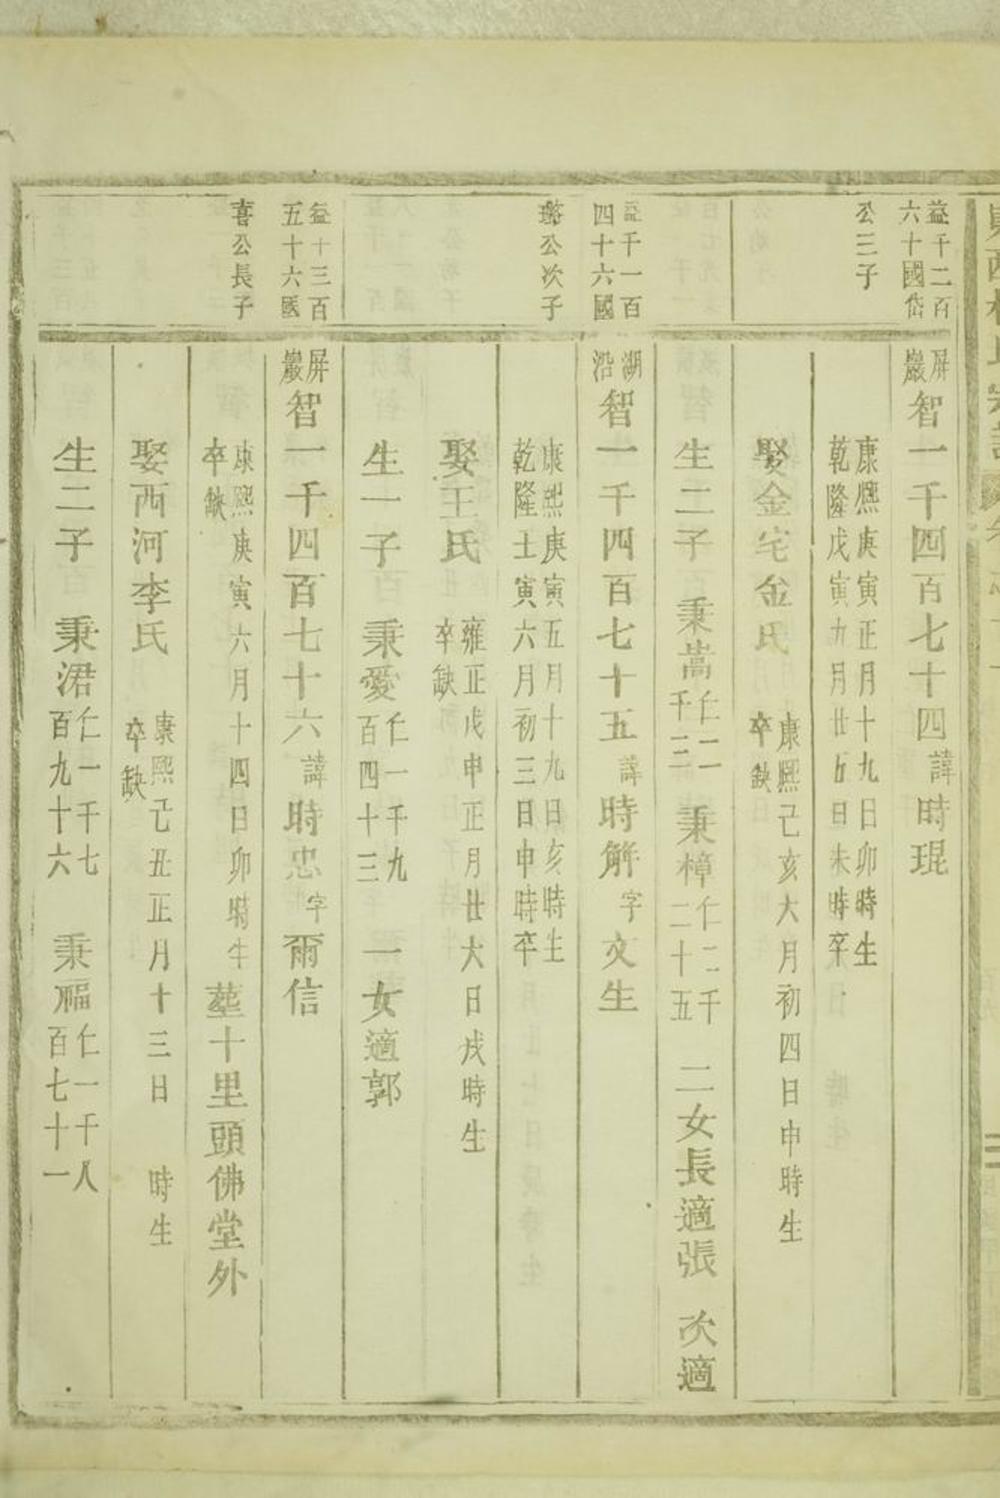 益千二百
六十國岱
公三子
屏巖智一千四百七十四諱時琨
康熙庚寅正月十九日卯時生
乾隆戊寅九月廿五日未時卒
娶金宅金氏
康熙己亥大月初四日申時生
卒缺
生二子 秉嵩仁二千三二 秉樟仁二千二十五 二女長適張 次適
益千一百
四十六國
璐公次子
湖沿智一千四百七十五諱時解字文生
康熙庚寅五月十九日亥時生
乾隆壬寅六月初三日申時卒
娶王氏
雍正戊申正月廿大日戌時生
卒缺
生一子 秉愛仁一千九百四十三 一女適郭
益十三百
五十六國
喜公長子
屏巖智一千四百七十六諱時忠字爾信
康熙庚寅六月十四日卯時生
卒缺
墓十里頭佛堂外
娶西河李氏
康熙己丑正月十三日 時生
卒缺
生二子 秉涒仁一千七百九十六 秉福仁一千八百七十一